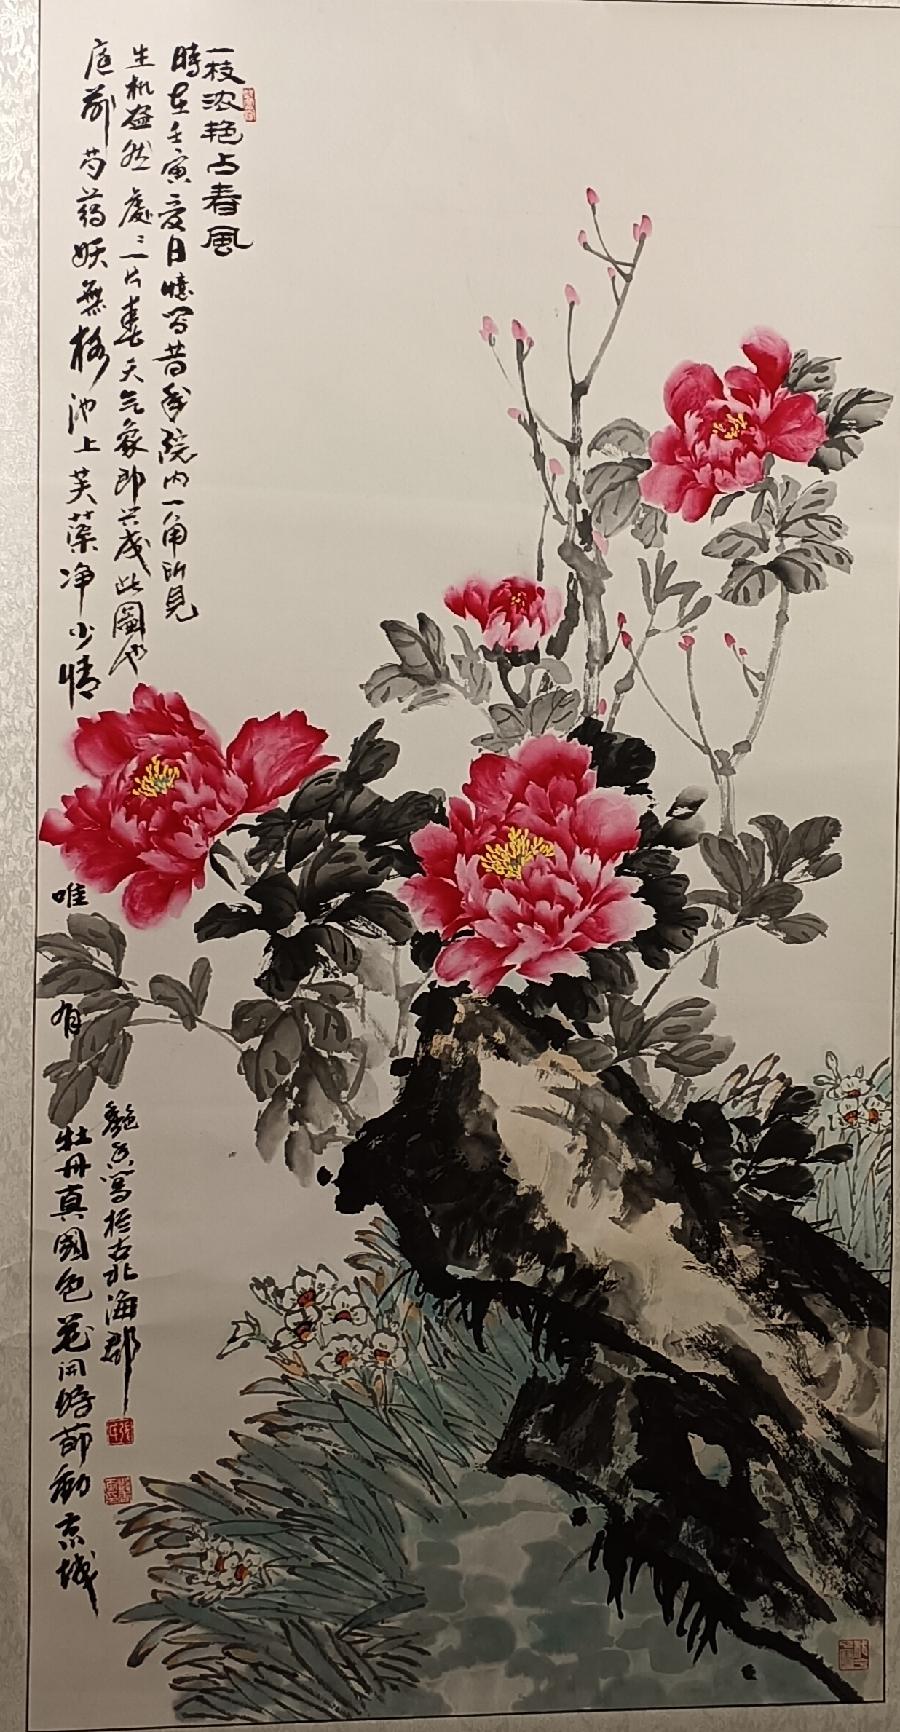 一枝浓艳占春风
時在壬寅夏日憶写昔年院内一角所見
生机盎然處二一片春天气象即兴成此圖也
庭前芍药妖無格池上芙蕖净少情
唯有牡丹真國色花開時節動京城
艷玉寫於古北海郡